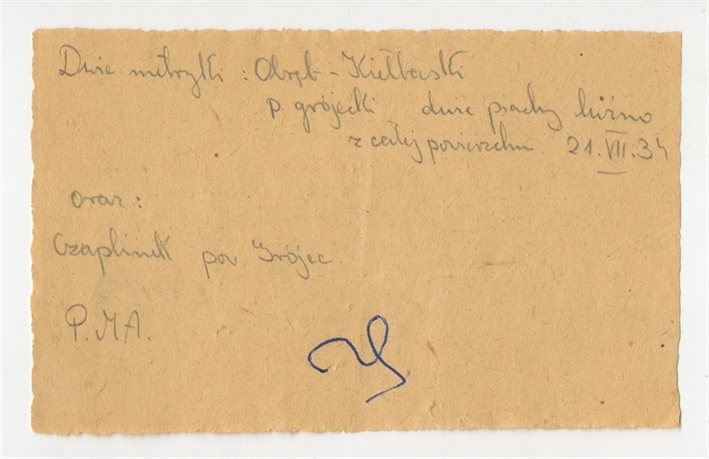 Dwie metryczki : Obręb - Kiełbaski
p. grójecki dwie piachy luźno
z całej powierzchni. 21.VII.34
oraz:
Czaplinek pow Grójec
P.M.A.